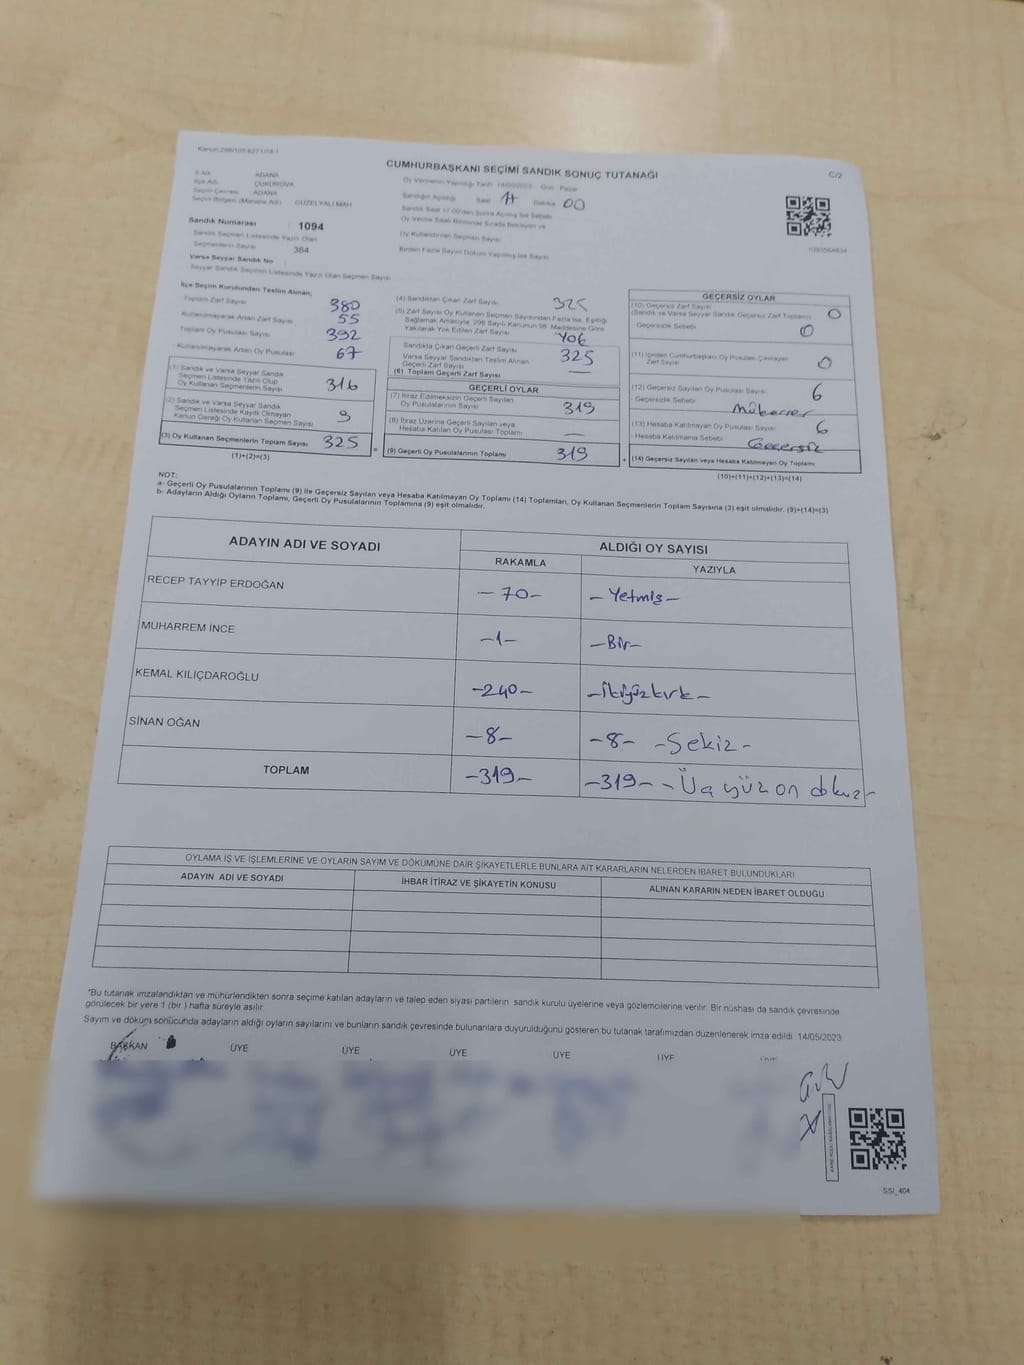 Kanun:298/105 827/1/18-1
CUMHURBAŞKANI SEÇİMİ SANDIK SONUÇ TUTANAĞI
C/2
İl Adı : ADANA
İlçe Adı : ÇUKUROVA
Seçim Çevresi : ADANA
Seçim Bölgesi (Mahalle Adı) : GÜZELYALI MAH
Oy Vermenin Yapıldığı Tarih : 14/05/2023 Gün : Pazar
Sandığın Açıldığı Saat 17 Dakika 00
Sandık Saat 17:00'den Sonra Açılmış İse Sebebi
Oy Verme Saati Bitiminde Sırada Bekleyen ve
Oy Kullandırılan Seçmen Sayısı
Birden Fazla Sayım Döküm Yapılmış İse Sayısı
Sandık Numarası : 1094
Sandık Seçmen Listesinde Yazılı Olan
Seçmenlerin Sayısı : 384
Varsa Seyyar Sandık No
Seyyar Sandık Seçmen Listesinde Yazılı Olan Seçmen Sayısı
İlçe Seçim Kurulundan Teslim Alınan;
Toplam Zarf Sayısı 380
Kullanılmayarak Artan Zarf Sayısı 55
Toplam Oy Pusulası Sayısı 392
Kullanılmayarak Artan Oy Pusulası 67
(1) Sandık ve Varsa Seyyar Sandık
Seçmen Listesinde Yazılı Olup
Oy Kullanan Seçmenlerin Sayısı 316
(2) Sandık ve Varsa Seyyar Sandık
Seçmen Listesinde Kayıtlı Olmayan
Kanun Gereği Oy Kullanan Seçmen Sayısı 9
(3) Oy Kullanan Seçmenlerin Toplam Sayısı 325
(1)+(2)=(3)
(4) Sandıktan Çıkan Zarf Sayısı 325
(5) Zarf Sayısı Oy Kullanan Seçmen Sayısından Fazla İse, Eşitliği
Sağlamak Amacıyla, 298 Sayılı Kanunun 98. Maddesine Göre
Yakılarak Yok Edilen Zarf Sayısı
Sandıkta Çıkan Geçerli Zarf Sayısı 325
Varsa Seyyar Sandıktan Teslim Alınan
Geçerli Zarf Sayısı —
(6) Toplam Geçerli Zarf Sayısı
GEÇERLİ OYLAR
(7) İtiraz Edilmeksizin Geçerli Sayılan
Oy Pusulalarının Sayısı 319
(8) İtiraz Üzerine Geçerli Sayılan veya
Hesaba Katılan Oy Pusulası Toplamı —
(9) Geçerli Oy Pusulalarının Toplamı 319
GEÇERSİZ OYLAR
(10) Geçersiz Zarf Sayısı
(Sandık ve Varsa Seyyar Sandık Geçersiz Zarf Toplamı) 0
- Geçersizlik Sebebi 0
(11) İçinden Cumhurbaşkanı Oy Pusulası Çıkmayan
Zarf Sayısı 0
(12) Geçersiz Sayılan Oy Pusulası Sayısı 6
- Geçersizlik Sebebi Mükerrer
(13) Hesaba Katılmayan Oy Pusulası Sayısı 6
- Hesaba Katılmama Sebebi Geçersiz
(14) Geçersiz Sayılan veya Hesaba Katılmayan Oy Toplamı
(10)+(11)+(12)+(13)=(14)
NOT:
a- Geçerli Oy Pusulalarının Toplamı (9) ile Geçersiz Sayılan veya Hesaba Katılmayan Oy Toplamı (14) Toplamları, Oy Kullanan Seçmenlerin Toplam Sayısına (3) eşit olmalıdır. (9)+(14)=(3)
b- Adayların Aldığı Oyların Toplamı, Geçerli Oy Pusulalarının Toplamına (9) eşit olmalıdır.
ADAYIN ADI VE SOYADI
ALDIĞI OY SAYISI
RAKAMLA YAZIYLA
RECEP TAYYİP ERDOĞAN -70- -Yetmiş-
MUHARREM İNCE -1- -Bir-
KEMAL KILIÇDAROĞLU -240- -İkiyüzkırk-
SİNAN OĞAN -8- -8- -Sekiz-
TOPLAM -319- -319- -Üçyüz on dokuz-
OYLAMA İŞ VE İŞLEMLERİNE VE OYLARIN SAYIM VE DÖKÜMÜNE DAİR ŞİKAYETLERLE BUNLARA AİT KARARLARIN NELERDEN İBARET BULUNDUKLARI
ADAYIN ADI VE SOYADI İHBAR İTİRAZ VE ŞİKAYETİN KONUSU ALINAN KARARIN NEDEN İBARET OLDUĞU
*Bu tutanak imzalandıktan ve mühürlendikten sonra seçime katılan adayların ve talep eden siyasi partilerin sandık kurulu üyelerine veya gözlemcilerine verilir. Bir nüshası da sandık çevresinde
görülecek bir yere 1 (bir ) hafta süreyle asılır
Sayım ve döküm sonucunda adayların aldığı oyların sayılarını ve bunların sandık çevresinde bulunanlara duyurulduğunu gösteren bu tutanak tarafımızdan düzenlenerek imza edildi. 14/05/2023
BAŞKAN ÜYE ÜYE ÜYE ÜYE ÜYE ÜYE
SSİ_404